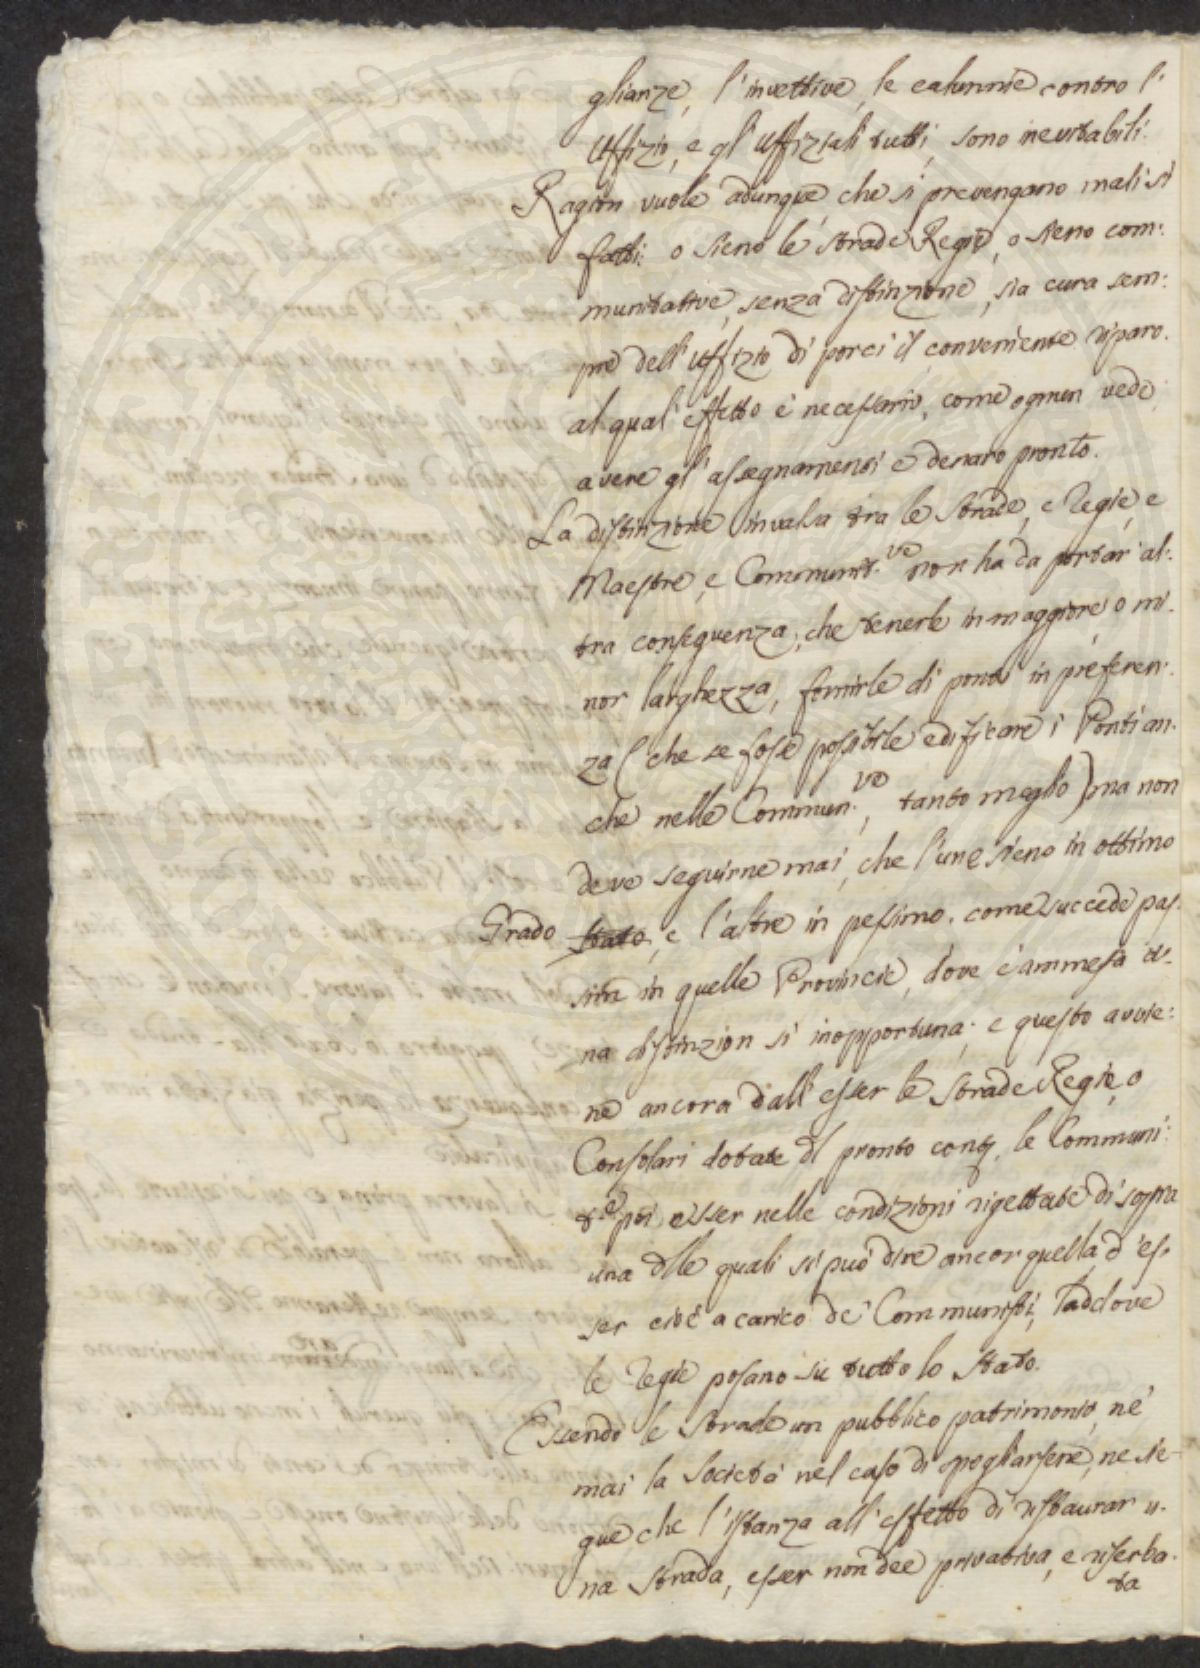 glianze, l'invettive, le calunnie contro l'
Uffizio, e gl'Uffiziali tutti, sono inevitabili.
Ragion vuole adunque che si prevengano mali si
fatti: o sieno le strade Regie, o sieno com:
munitative, senza distinzione, sia cura sem:
pre dell'Uffizio di porci il conveniente riparo.
al qual'effetto è necessario, come ognun vede,
avere gl'assegnamenti e denaro pronto.
La distinzione invalsa tra le strade, e Regie, e
Maestre, e Communit.ve non ha da portar'al:
tra conseguenza, che tenerle in maggiore o mi:
nor larghezza, fornirle di ponti in preferen:
za (che se fosse possibile edificare i Ponti an:
che nelle Commun.ve, tanto meglio) ma non
deve seguirne mai, che l'une sieno in ottimo
Grado stato, e l'altre in pessimo. come succede pas:
sim in quelle Provincie, dove è ammessa u:
na distinzion si inopportuna; e questo avvie:
ne ancora dall'esser le strade Regie, o
Consolari dotate di pronto conty, le Communi:
t.ve poi esser nelle condizioni rigettate di sopra
una dlle quali si può dire ancor quella, d'es:
ser cioè a carico de' Communisti, laddove
le Regie posano su tutto lo stato.
Essendo le strade un pubblico patrimonio, nè
mai la Società nel caso di spogliarsene, ne sie:
gue che l'istanza all'effetto di ristaurar u:
na strada, esser non dee privativa, e riserba:
ta